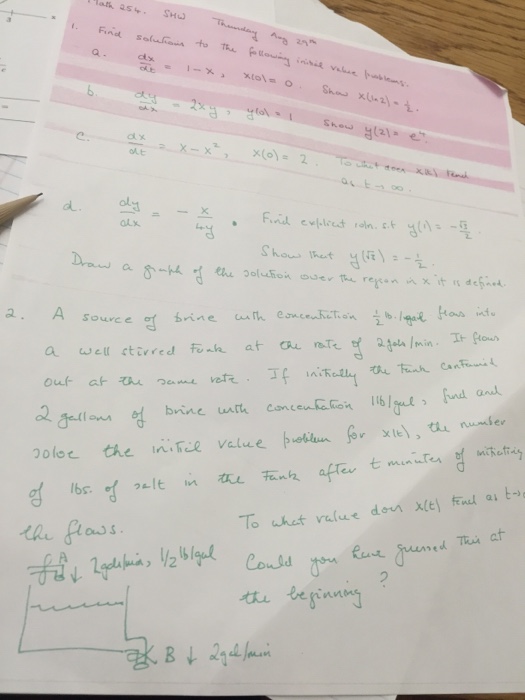 Math 254. SHW Thursday Aug 29th
1. Find solutions to the following initial value problems.
a. dx/dt = 1-x, x(0) = 0. Show x(ln2) = 1/2.
b. dy/dx = 2xy, y(0) = 1 Show y(2) = e^4
c. dx/dt = x - x², x(0) = 2. To what does x(t) tend
as t → ∞.
d. dy/dx = - x/4y. Find explicit soln. s.t y(1) = -√2/2
Show that y(√2) = -1/2.
Draw a graph of the solution over the region in x it is defined.
2. A source of brine with concentration 1/2 lb./gal flows into
a well stirred tank at the rate of 2 gals/min. It flows
out at the same rate. If initially the tank contained
2 gallons of brine with concentration 1lb/gal, find and
solve the initial value problem for x(t), the number
of lbs. of salt in the tank after t minutes of initiating
the flows. To what value does x(t) tend as t→
A ↓ 2gals/min, 1/2 lb/gal Could you have guessed this at
the beginning?
B ↓ 2gal/min